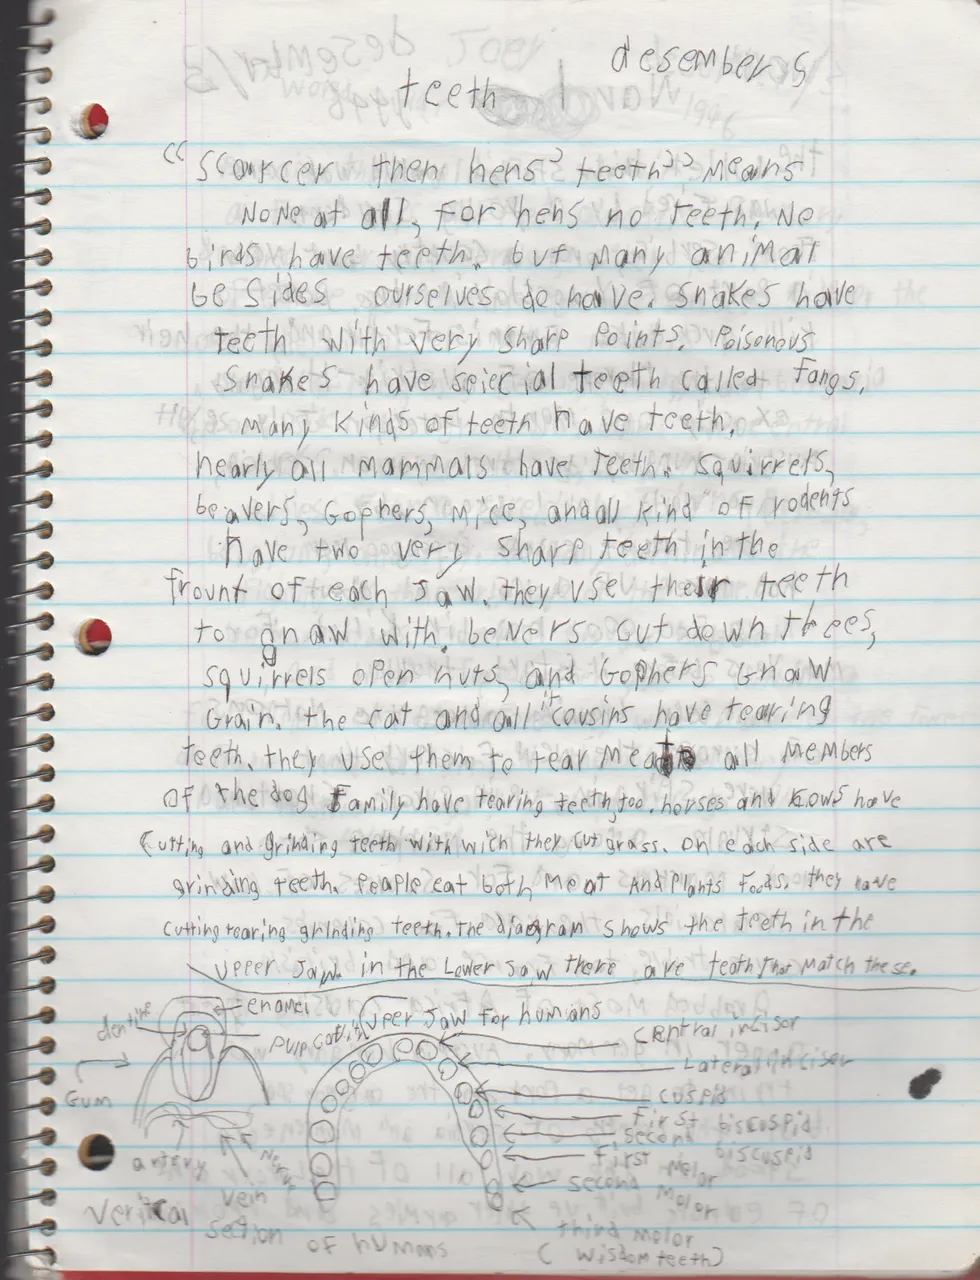 desember 5
teeth
“Scourcer then hens’ teeth” means
none at all, for hens no teeth. No
birds have teeth. but many animal
be sides ourselves do have. snakes have
teeth with very sharp points. Poisonous
snakes have speicial teeth called fangs,
many kinds of teeth have teeth,
nearly all mammals have teeth. squirrels,
beavers, Gophers, mice, and all kind of rodents
have two very sharp teeth in the
frount of each jaw. they use their teeth
to gnaw with. bevers cut down trees,
squirrels open nuts, and Gophers Gnaw
Grain. the cat and all it cousins have tearing
teeth. they use them to tear meat all members
of the dog family have tearing teeth too. horses and kows have
cutting and grinding teeth with wich they cut grass. on each side are
grinding teeth. People eat both meat and plants foods. they have
cutting tearing grinding teeth. the diagram shows the teeth in the
upper jaw. in the Lower jaw there are teath that match these.
enamel
dentine
pulp
Gum
artery
nerve
vein
Veritcal
section
of humans
Uper Jaw for humans
central incisor
Lateral incisor
cuspid
first biscuspid
second biscuspid
first molor
second molor
third molor
(wisdom teeth)